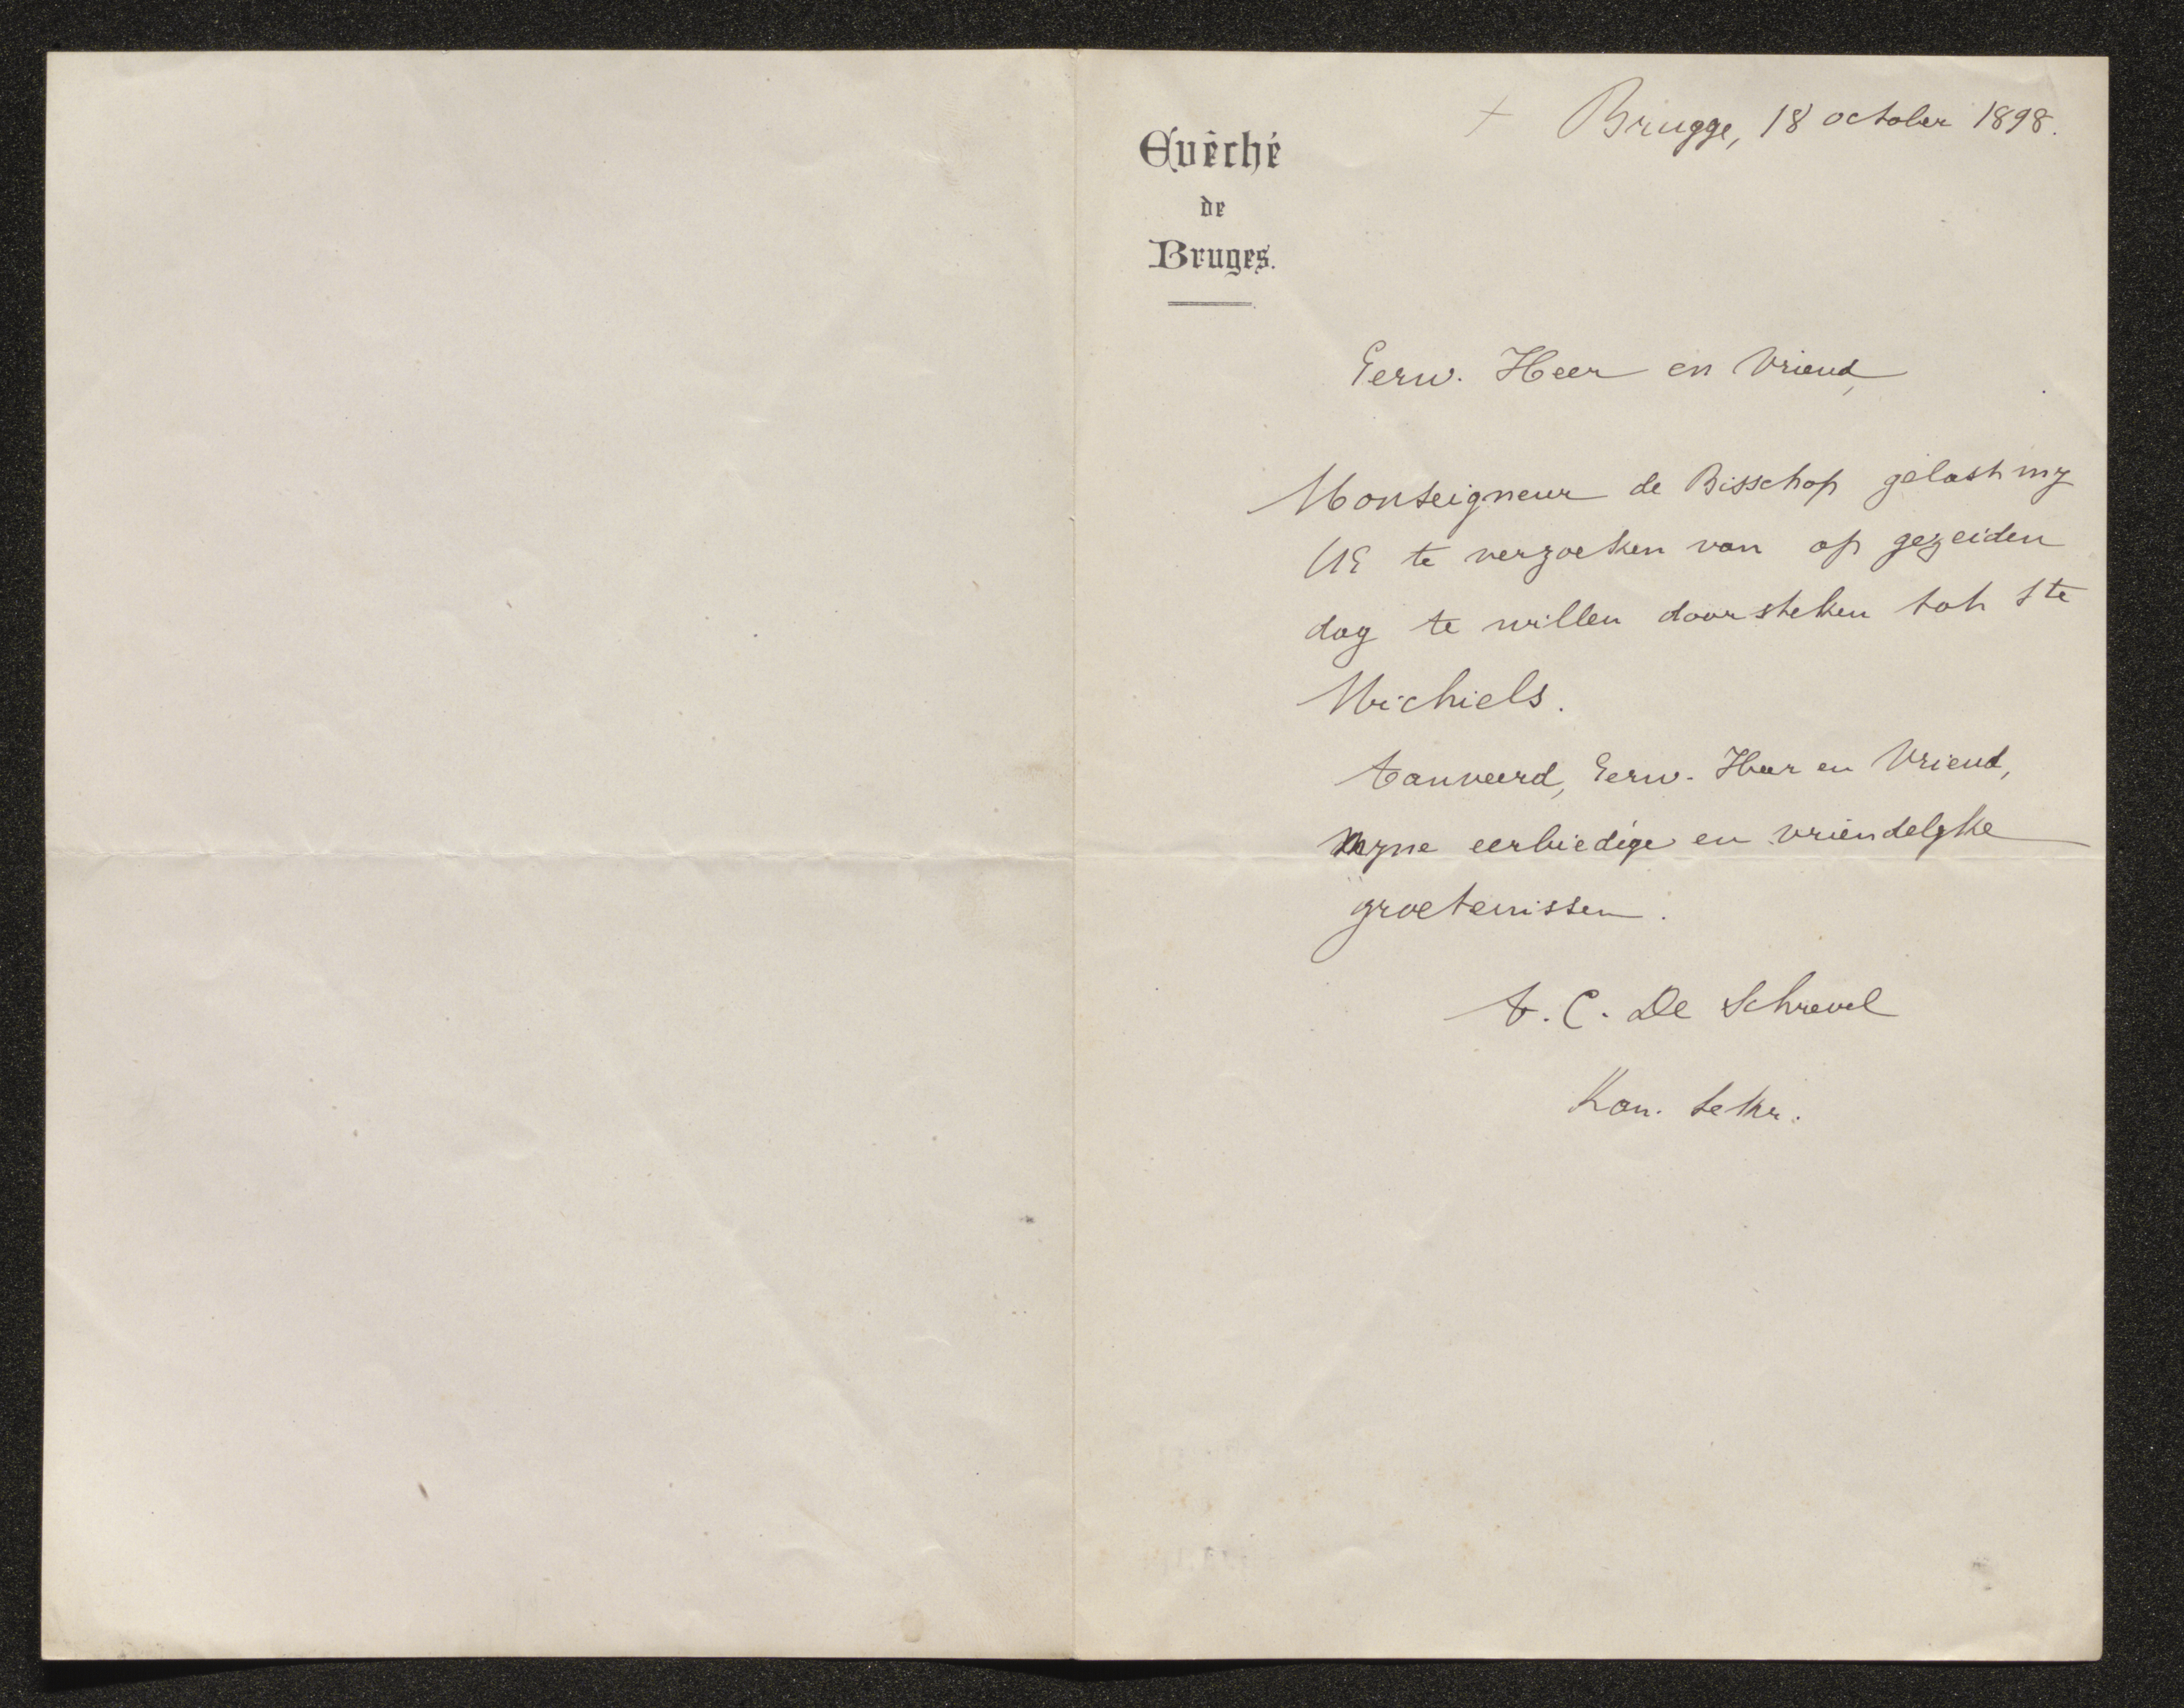 + Brugge, 18 october 1898.
Evêché
de
Bruges.
Eerw. Heer en Vriend,
Monseigneur de Bisschop gelast my
UE te verzoeken van op gezeiden
dag te willen doorsteken tot Ste
Michiels.
Aanveerd, Eerw. Heer en Vriend,
myne eerbiedige en vriendelyke
groetenissen.
A. C. De Schrevel
Kan. Sekr.